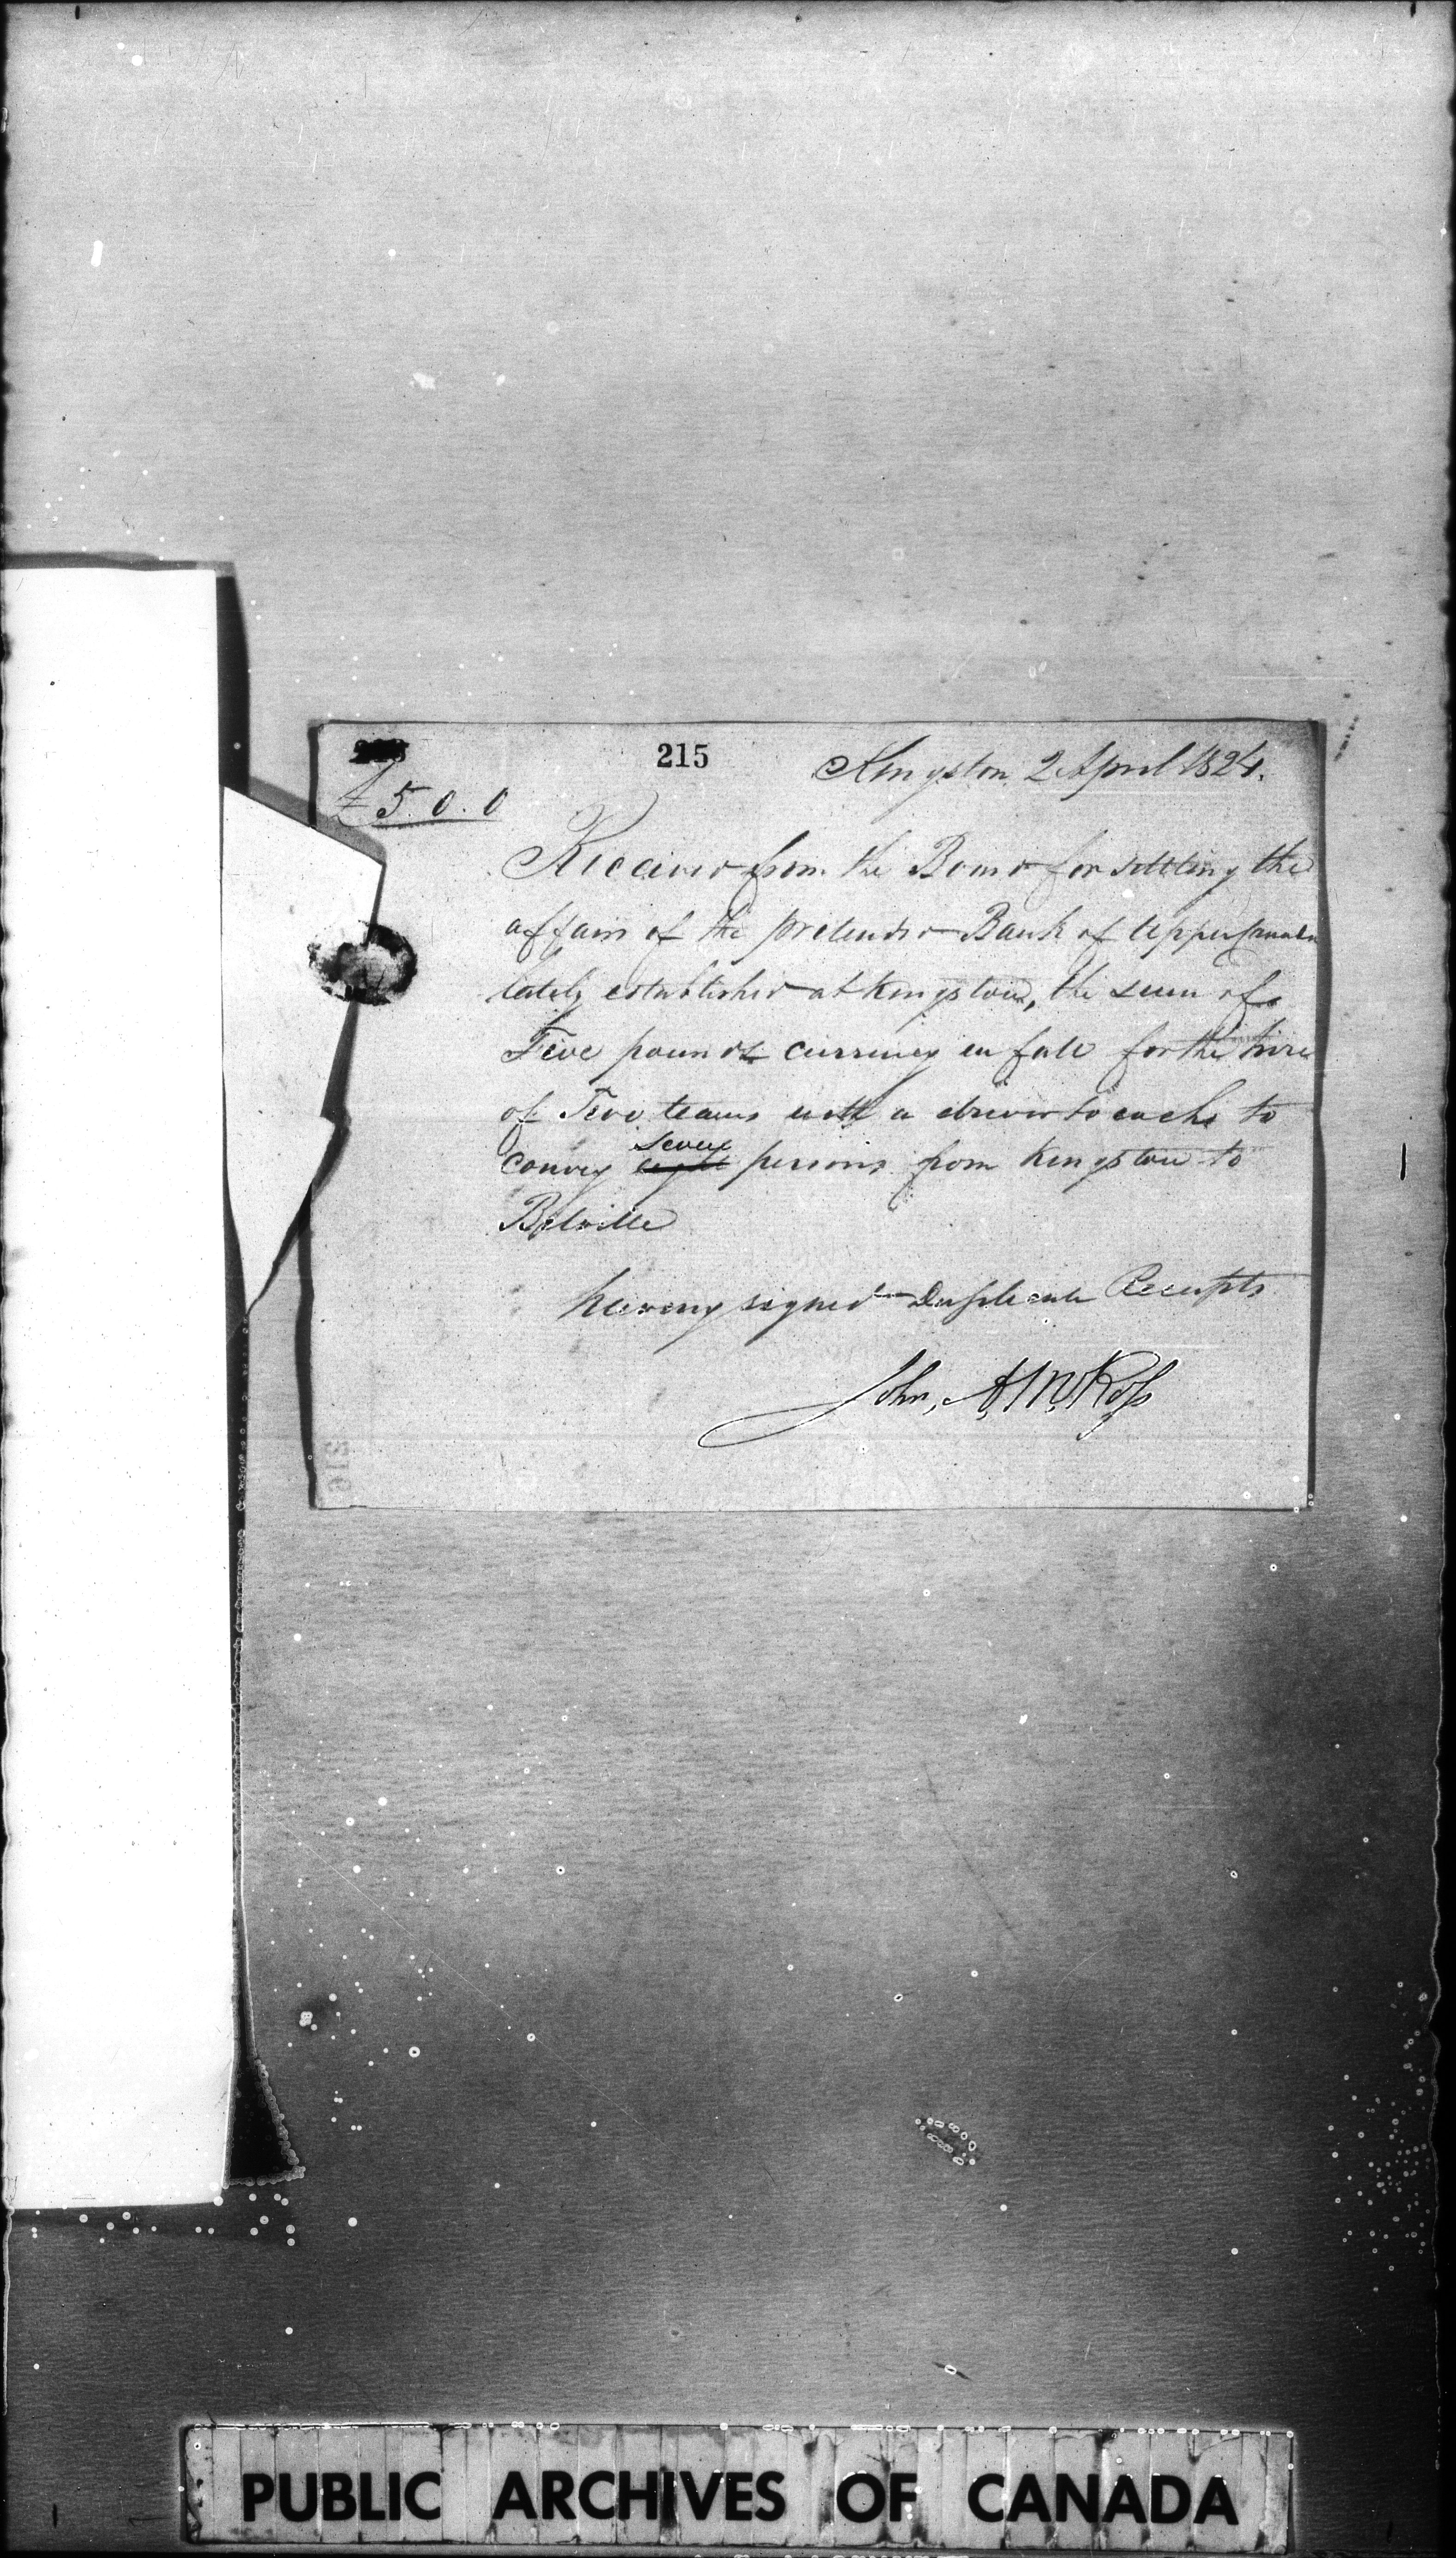 215
Kingston 2 April 1824.
£5.0.0
Received from the Board for settling the
affairs of the pretended Bank of Upper Canada
lately established at Kingston, the sum of
Five pounds currency in full for the hire
of Two teams with a driver to each to
convey seven eight persons from Kingston to
Belville
having signed Duplicate Receipts
John, A, W, Ross
216
PUBLIC ARCHIVES OF CANADA